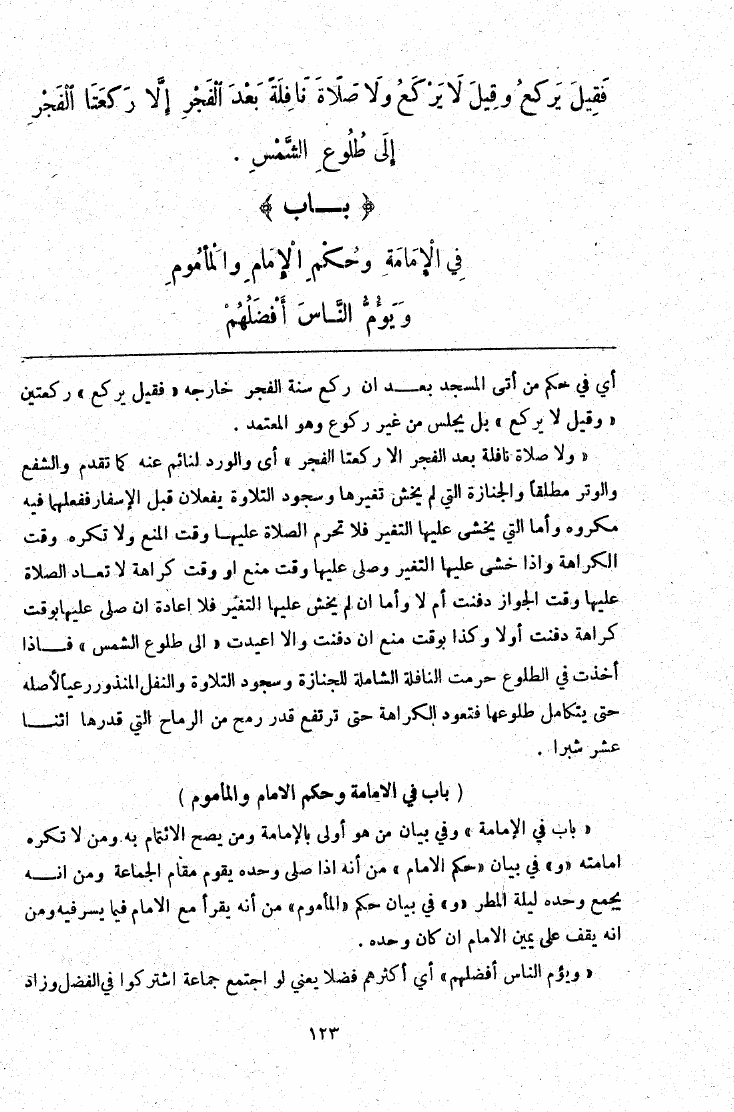 فَقِيلَ يَرْكَعُ وَقِيلَ لَا يَرْكَعُ وَلَا صَلَاةَ نَافِلَةً بَعْدَ الْفَجْرِ إِلَّا رَكْعَتَا الْفَجْرِ
إِلَى طُلُوعِ الشَّمْسِ .
﴿ بـــاب ﴾
فِي الْإِمَامَةِ وَحُكْمِ الْإِمَامِ وَالْمَأْمُومِ
وَيَؤُمُّ النَّاسَ أَفْضَلُهُمْ
أي في حكم من أتى المسجد بعـــد ان ركع سنة الفجر خارجه « فقيل يركع » ركعتين
« وقيل لا يركع » بل يجلس من غير ركوع وهو المعتمد .
« ولا صلاة نافلة بعد الفجر الا ركعتا الفجر » أى والورد لنائم عنه كما تقدم والشفع
والوتر مطلقاً والجنازة التي لم يخش تغيرها وسجود التلاوة يفعلان قبل الإسفار ففعلهما فيه
مكروه وأما التي يخشى عليها التغير فلا تحرم الصلاة عليهـا وقت المنع ولا تكره وقت
الكراهة واذا خشى عليها التغير وصلى عليها وقت منع او وقت كراهة لا تعـاد الصلاة
عليها وقت الجواز دفنت أم لا وأما ان لم يخش عليها التغير فلا اعادة ان صلى عليها بوقت
كراهة دفنت أولا وكذا بوقت منع ان دفنت والا اعيدت « الى طلوع الشمس » فـــاذا
أخذت في الطلوع حرمت النافلة الشاملة للجنازة وسجود التلاوة والنفل المنذور رعياً لأصله
حتى يتكامل طلوعها فتعود الكراهة حتى ترتفع قدر رمح من الرماح التي قدرها اثنـــا
عشر شبرا .
( باب في الامامة وحكم الامام والمأموم )
« باب في الإمامة » وفي بيان من هو أولى بالإمامة ومن يصح الائتمام به ومن لا تكره
امامته «و» في بيان «حكم الامام » من أنه اذا صلى وحده يقوم مقام الجماعة ومن انـــه
يجمع وحده ليلة المطر «و» في بيان حكم «المأموم» من أنه يقرأ مع الامام فيما يسر فيه ومن
انه يقف على يمين الامام ان كان وحده .
« ويؤم الناس أفضلهم» أي أكثرهم فضلا يعني لو اجتمع جماعة اشتركوا في الفضل وزاد
١٢٣